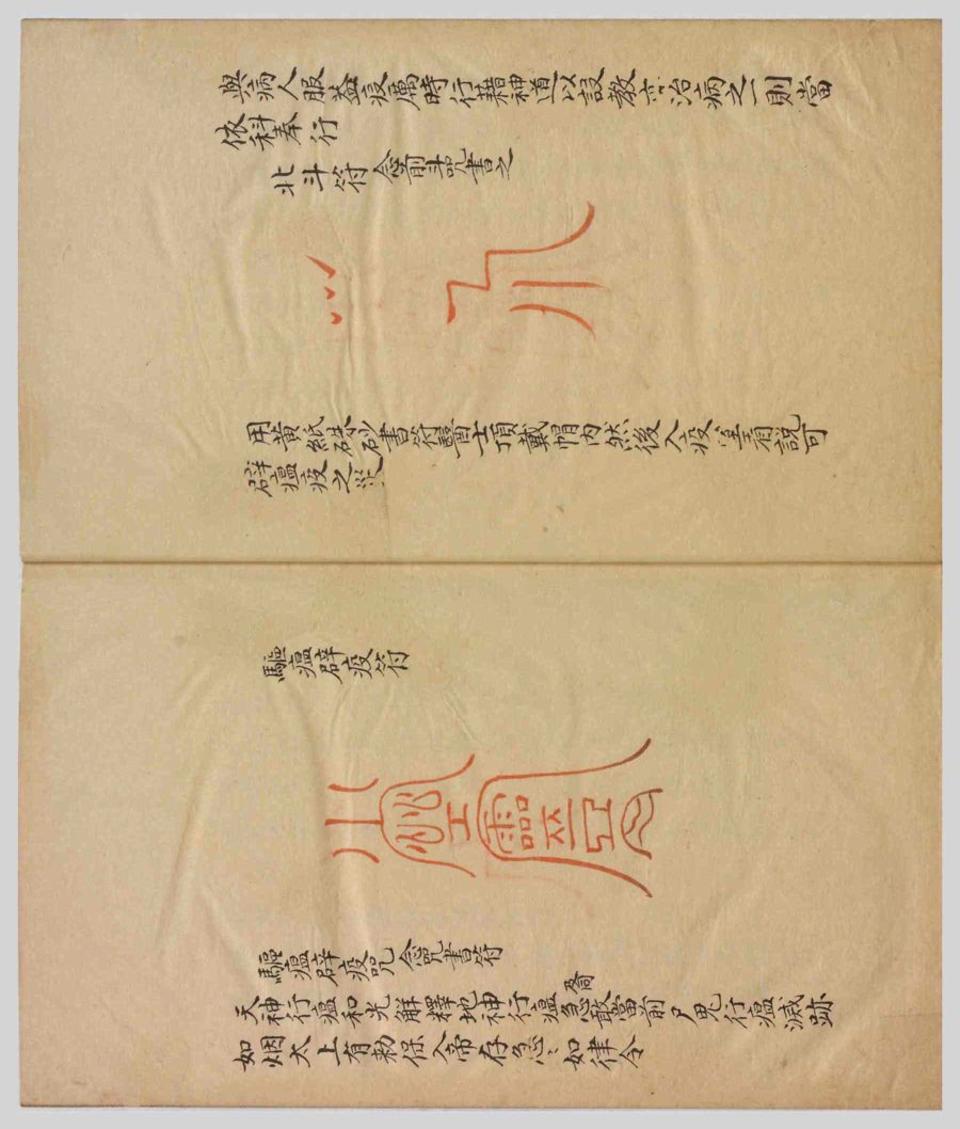 與病人服盖疫厲時行藉神道以設教亦治病之一則當
依科奉行
北斗符 念前斗咒書之
用黃紙硃砂書符醫士頂戴帽內然後入疫室看說可
辟瘟疫之災
驅瘟辟疫符
驅瘟辟疫咒 念咒書符
天神行瘟和光解釋地神行瘟急敢當前尸鬼行瘟滅跡
如烟太上有勅保入帝存急〻如律令